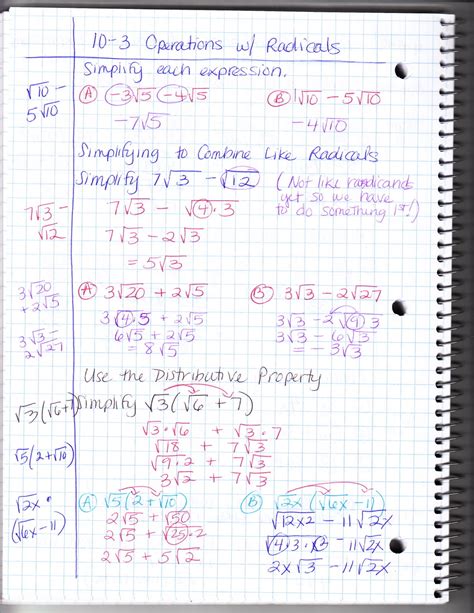 10-3 Operations w/ Radicals
Simplify each expression.
√10 - 5√10
Ⓐ -3√5 -4√5
-7√5
Ⓑ 1√10 - 5√10
-4√10
Simplifying to Combine Like Radicals
Simplify 7√3 - √12 (Not like radicands yet so we have to do something 1st!)
7√3 - √12
7√3 - √4·3
7√3 - 2√3
= 5√3
3√20 + 2√5
Ⓐ 3√20 + 2√5
3√4·5 + 2√5
6√5 + 2√5
= 8√5
3√3 - 2√27
Ⓑ 3√3 - 2√27
3√3 - 2√9·3
3√3 - 6√3
= -3√3
Use the Distributive Property
√3(√6+7)
Simplify √3(√6 + 7)
√3·√6 + √3·7
√18 + 7√3
√9·2 + 7√3
3√2 + 7√3
√5(2+√10)
Ⓐ √5(2+√10)
2√5 + √50
2√5 + √25·2
2√5 + 5√2
√2x · (√6x - 11)
Ⓑ √2x(√6x - 11)
√12x2 - 11√2x
2x√3 - 11√2x